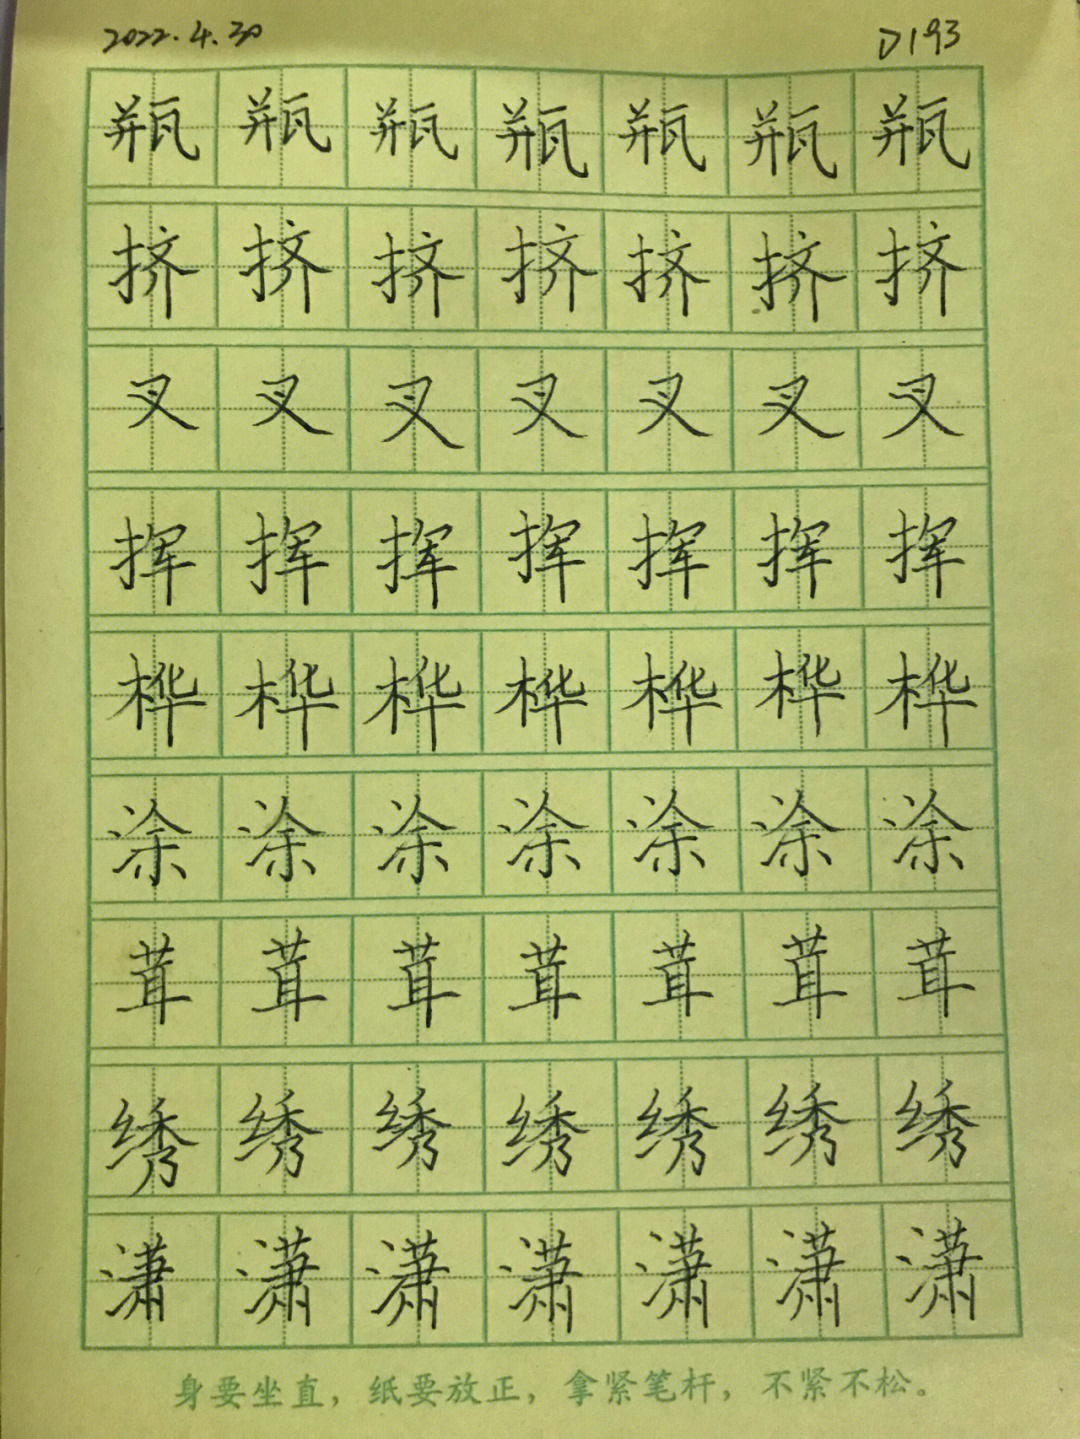 2022.4.30 D193
瓶瓶瓶瓶瓶瓶瓶
挤挤挤挤挤挤挤
叉叉叉叉叉叉叉
挥挥挥挥挥挥挥
桦桦桦桦桦桦桦
涂涂涂涂涂涂涂
茸茸茸茸茸茸茸
绣绣绣绣绣绣绣
潇潇潇潇潇潇潇
身要坐直，纸要放正，拿紧笔杆，不紧不松。